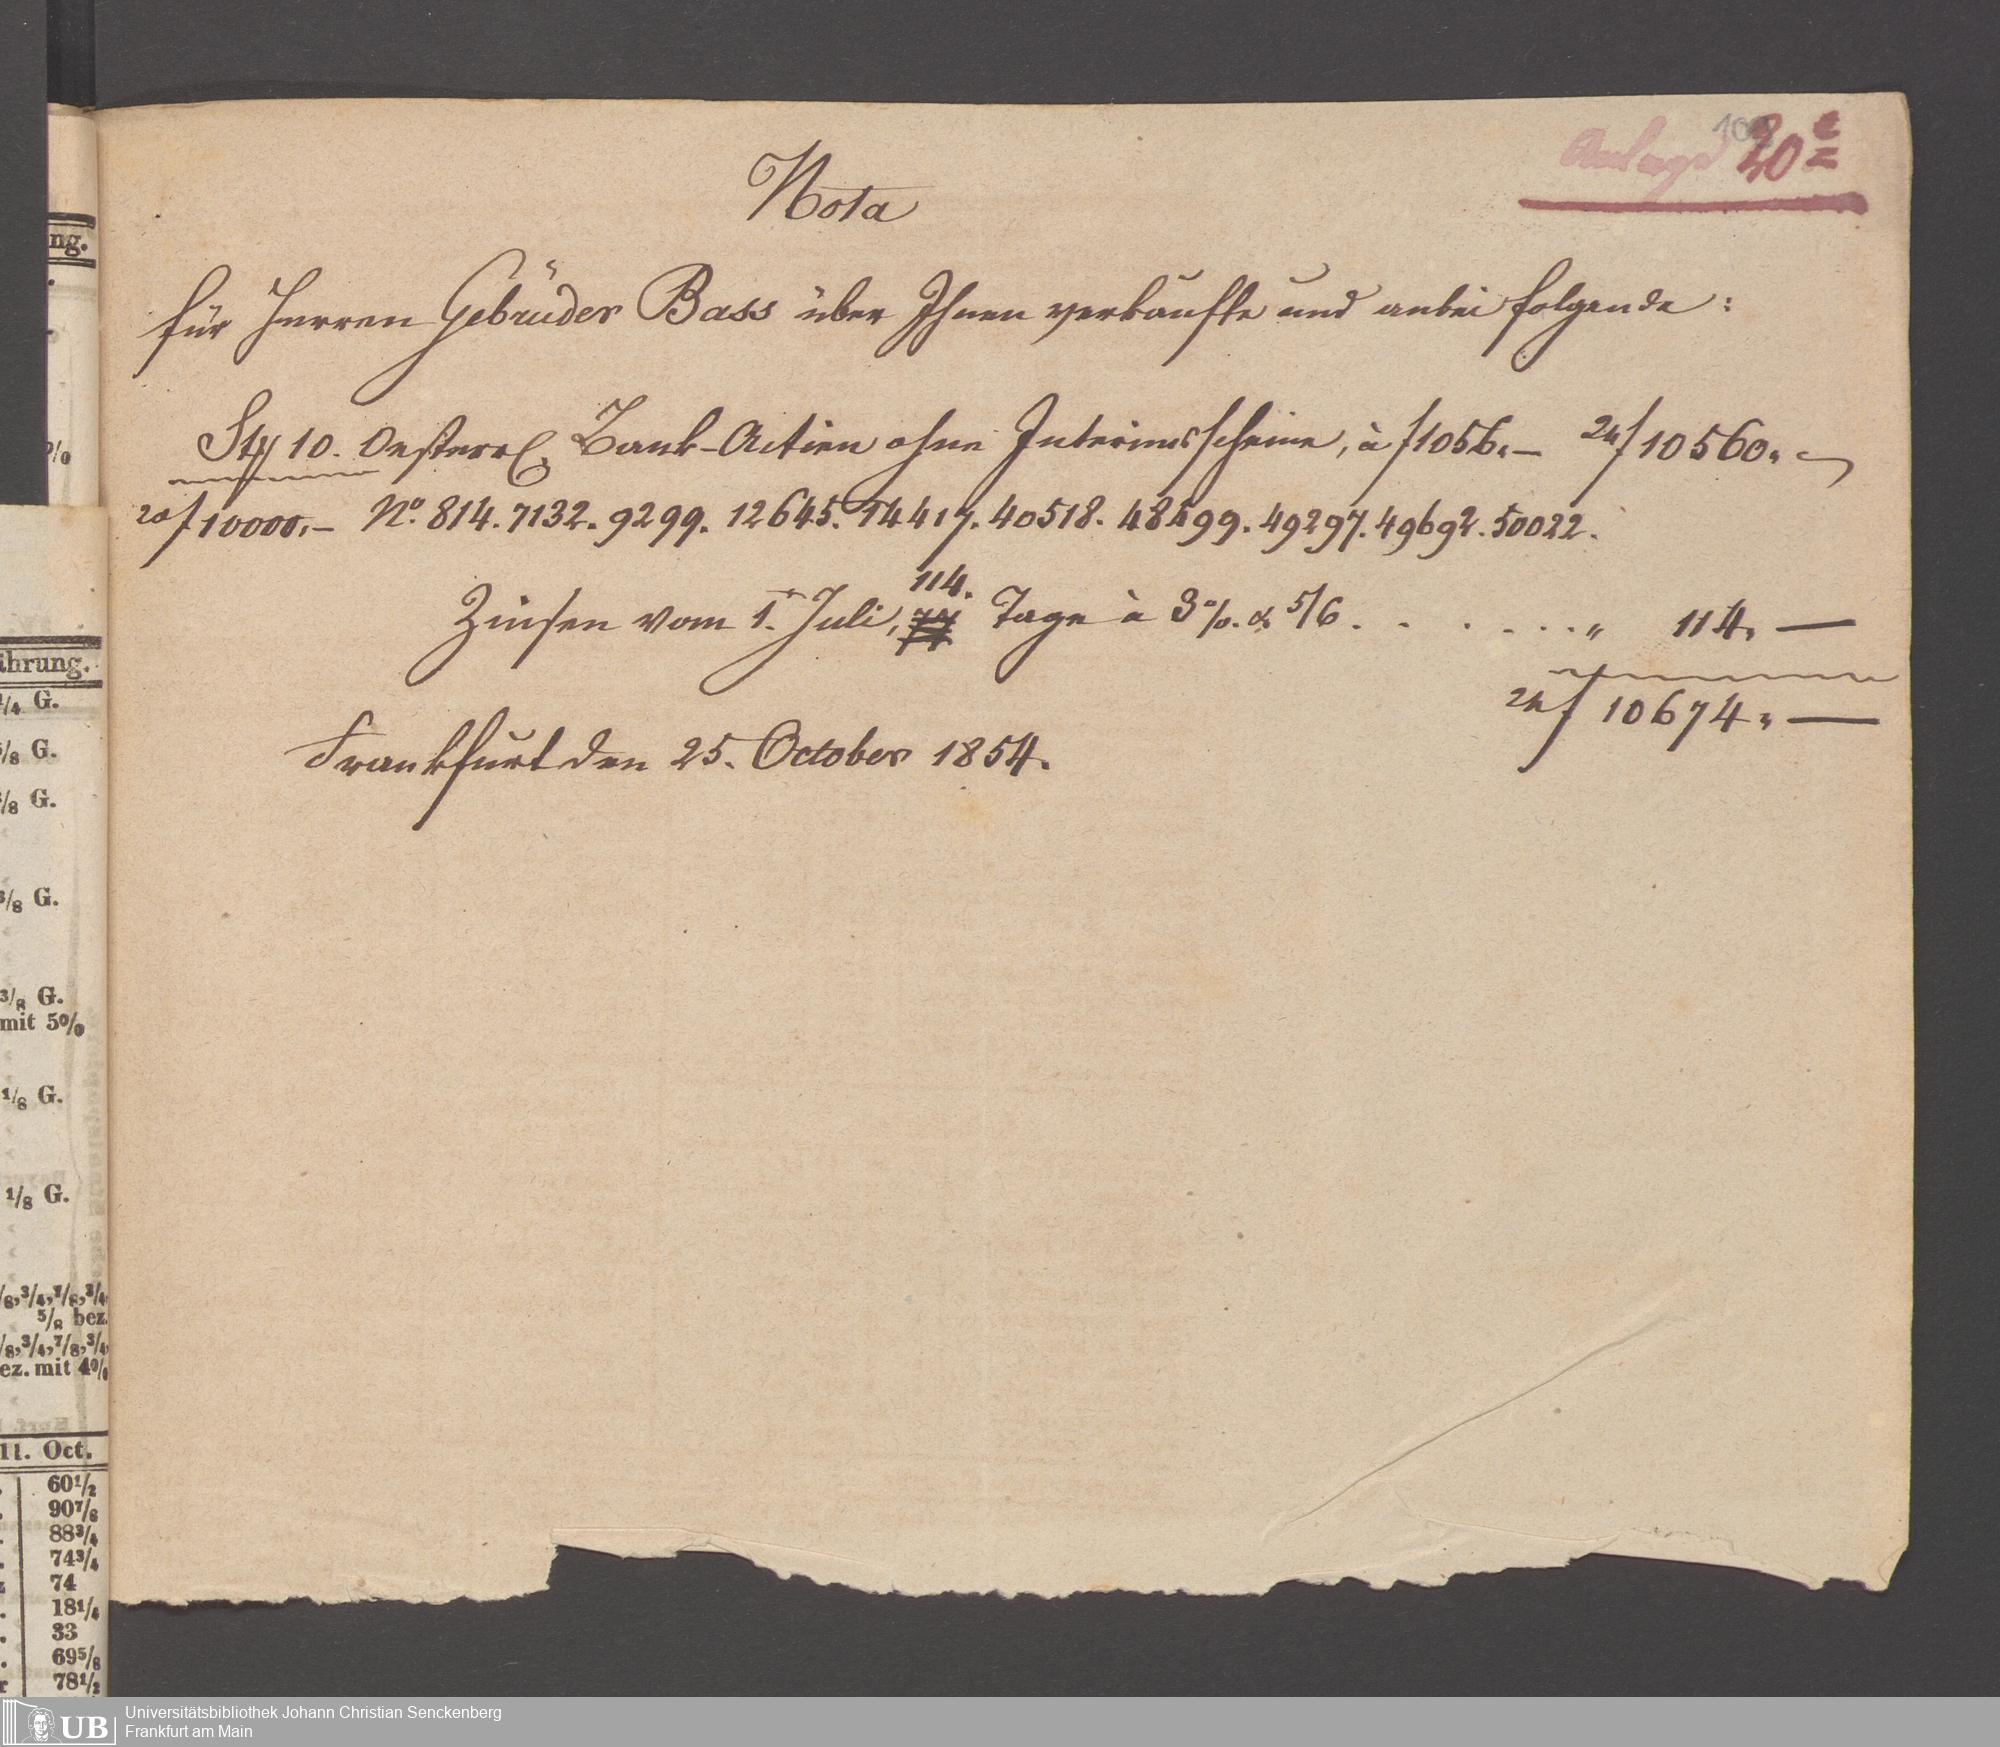 Anlage 20
Nota
für Herren Gebrüder Bass über Ihnen verkaufte und anbei folgende:
10. Oesterr. Bank-Actien ohne Interimsscheine, à f 1056.— 24/f 10560.—
20/f 10000.— No. 814. 7132. 9299. 12645. 14417. 40518. 48599. 49297. 49692. 50022.
114.
Zinsen vom 1. Juli, Tage à 3 %. & 5/6 . . . . . . . „ 114.—
24/f 10674.—
Frankfurt den 25. October 1854.
ng.
%
ährung.
1/4 G.
5/8 G.
/8 G.
3/8 G.
3/8 G.
mit 5%
1/8 G.
1/8 G.
/8, 3/4, 7/8, 3/4
5/8 bez.
/8, 3/4, 7/8, 3/4,
ez. mit 4%
11. Oct.
60 1/2
90 7/8
88 3/4
74 3/4
74
18 1/4
33
69 5/8
78 1/2
UB Universitätsbibliothek Johann Christian Senckenberg
Frankfurt am Main